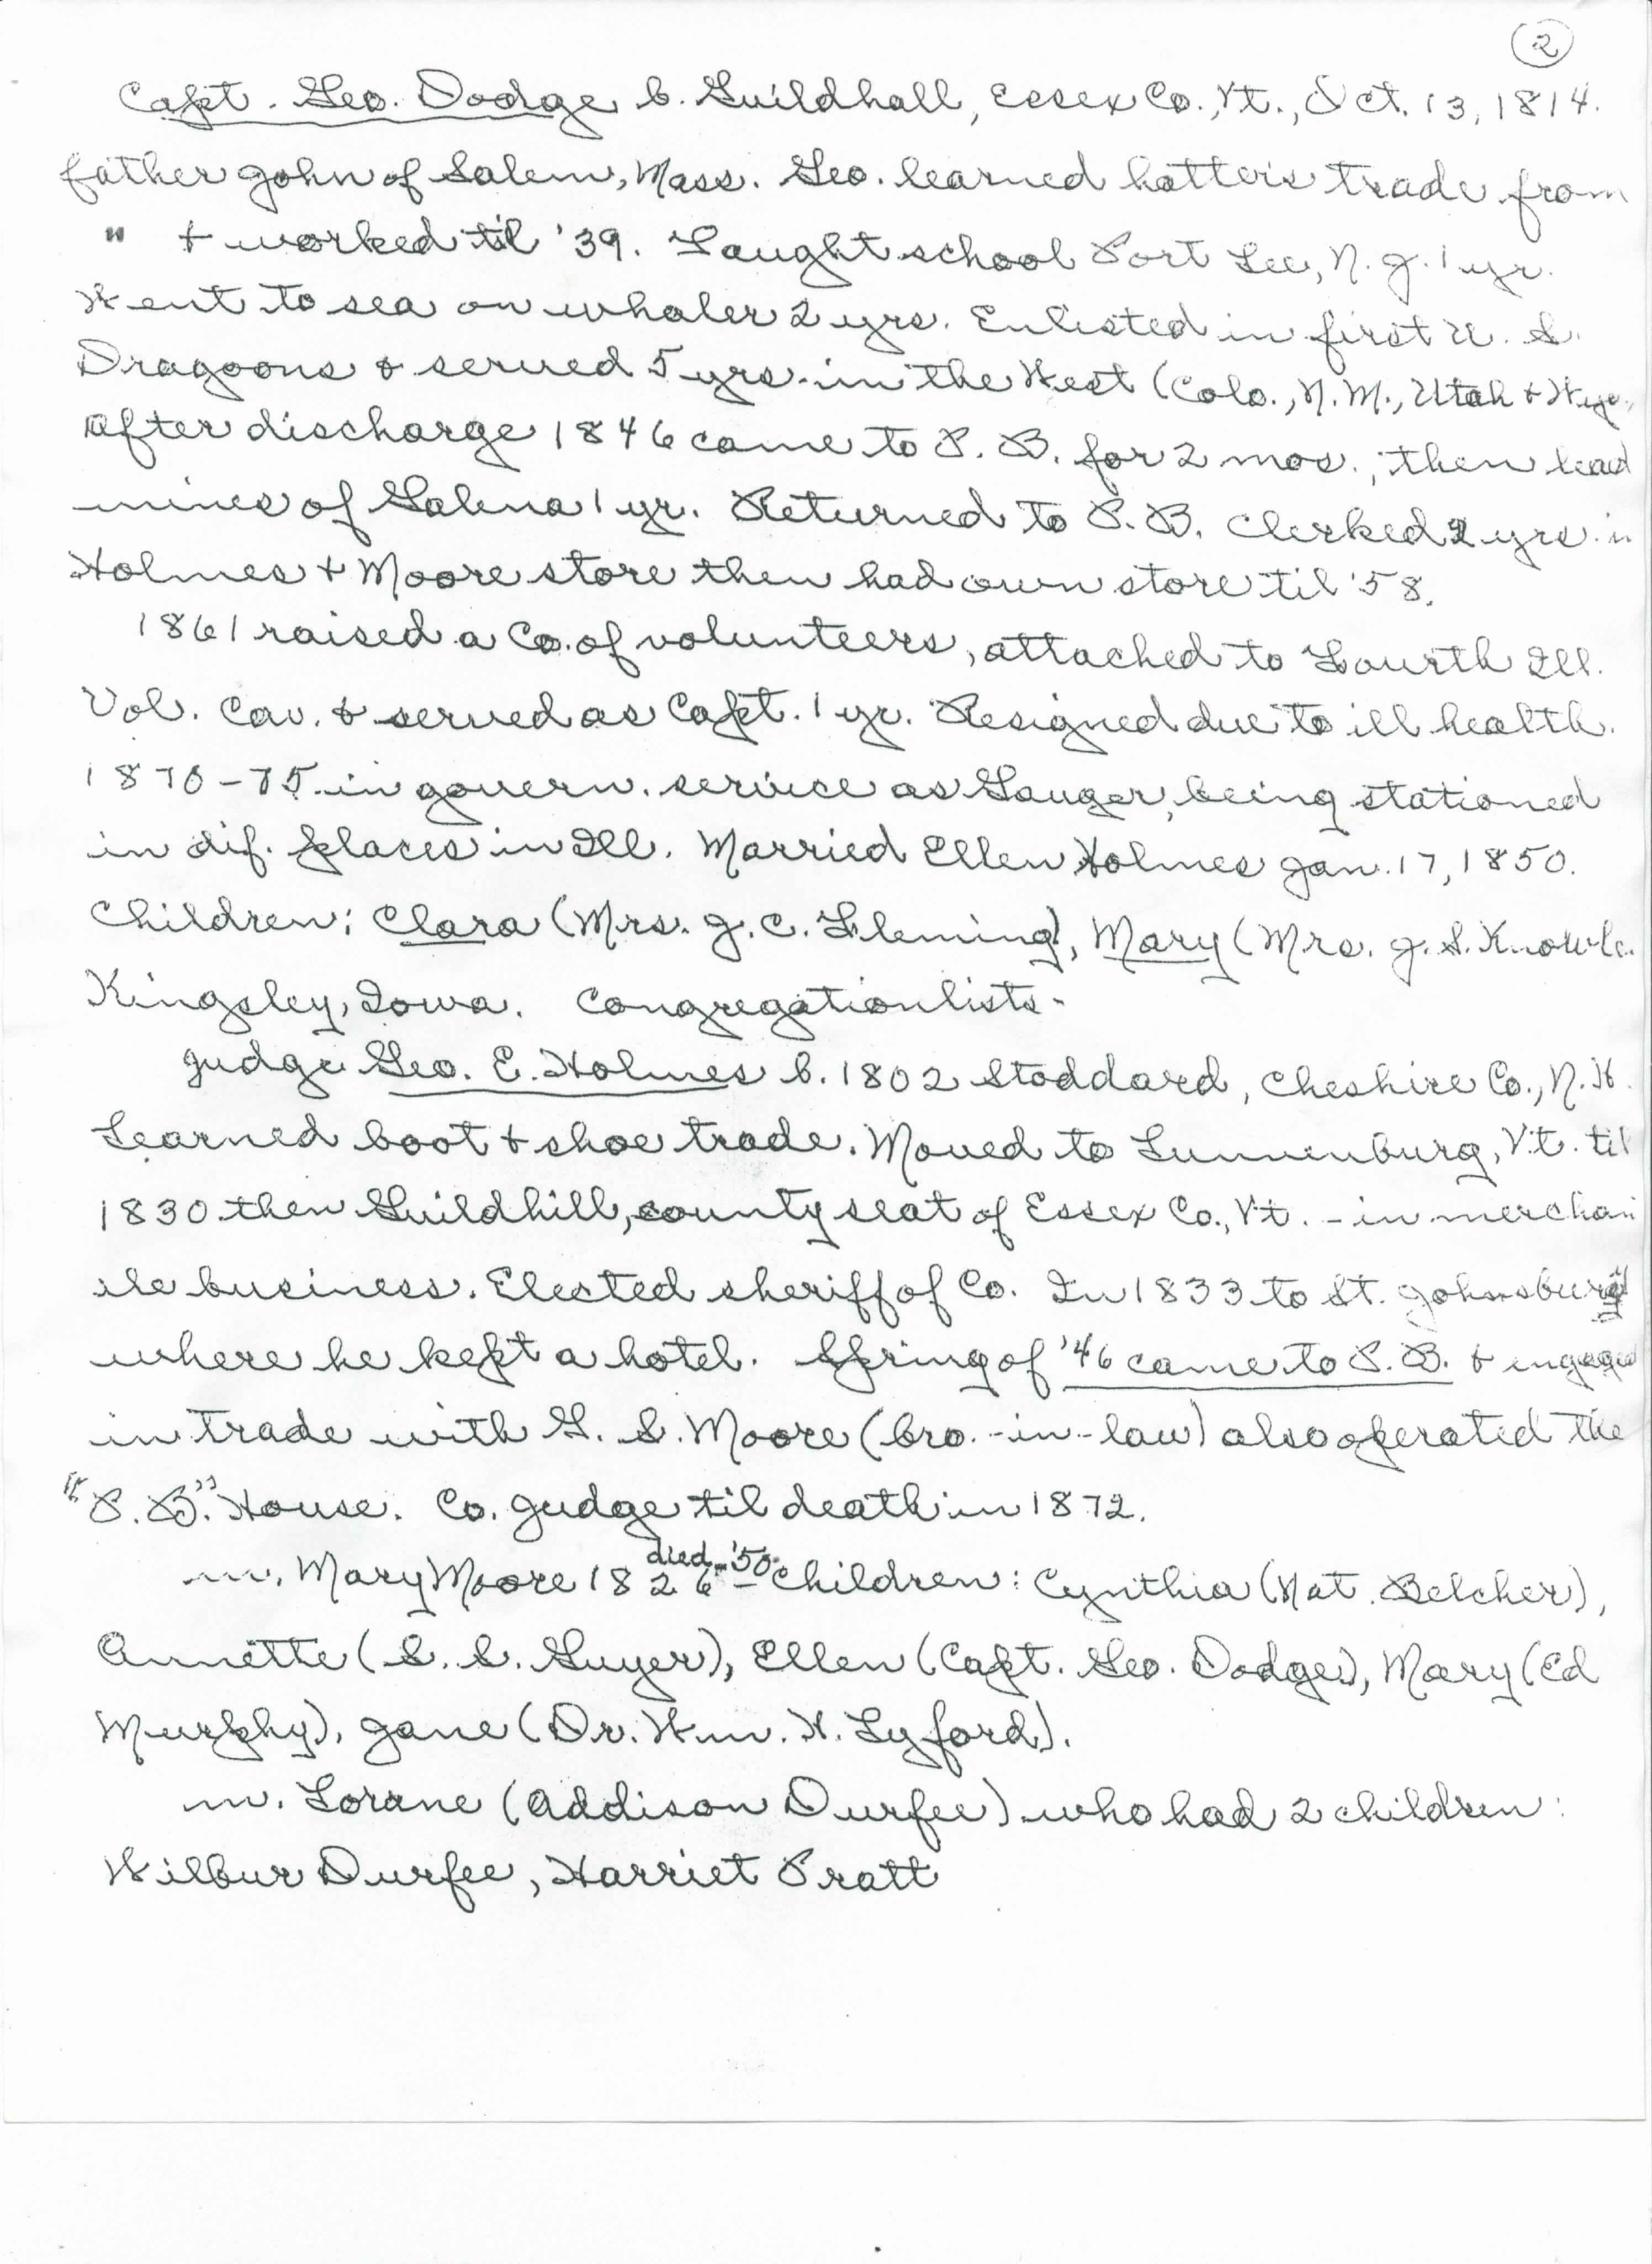 2
Capt. Geo. Dodge b. Guildhall, Essex Co., Vt., Oct. 13, 1814.
father John of Salem, Mass. Geo. learned hatter's trade from
" + worked til '39. Taught school Port Lee, N. J. 1 yr.
Went to sea on whaler 2 yrs. Enlisted in first U. S.
Dragoons & served 5 yrs. in the West (Colo., N. M., Utah + Wyo.,
After discharge 1846 came to P. B. for 2 mos.; then lead
mines of Galena 1 yr. Returned to P. B. Clerked 2 yrs. in
Holmes + Moore store then had own store til '58.
1861 raised a Co. of volunteers, attached to Fourth Ill.
Vol. Cav. & served as Capt. 1 yr. Resigned due to ill health.
1870-75 in govern. service as Gauger, being stationed
in dif. places in Ill. Married Ellen Holmes Jan. 17, 1850.
Children: Clara (Mrs. J. C. Fleming), Mary (Mrs. J. S. Knowle
Kingsley, Iowa. Congregationlists-
Judge Geo. E. Holmes b. 1802 Stoddard, Cheshire Co., N. H.
Learned boot + shoe trade. Moved to Lunnenburg, Vt. til
1830 then Guildhill, county seat of Essex Co., Vt. - in merchan
ile business. Elected sheriff of Co. In 1833 to St. Johnsbury
where he kept a hotel. Spring of '46 came to P. B. + engaged
in trade with G. S. Moore (bro.-in-law) also operated the
"P. B." House. Co. Judge til death in 1872.
died '50
m. Mary Moore 1826 - Children: Cynthia (Nat. Belcher),
Annette (S. S. Guyer), Ellen (Capt. Geo. Dodge), Mary (Ed
Murphy), Jane (Dr. Wm. H. Lyford).
m. Lorane (Addison Durfee) who had 2 children:
Wilbur Durfee, Harriet Pratt